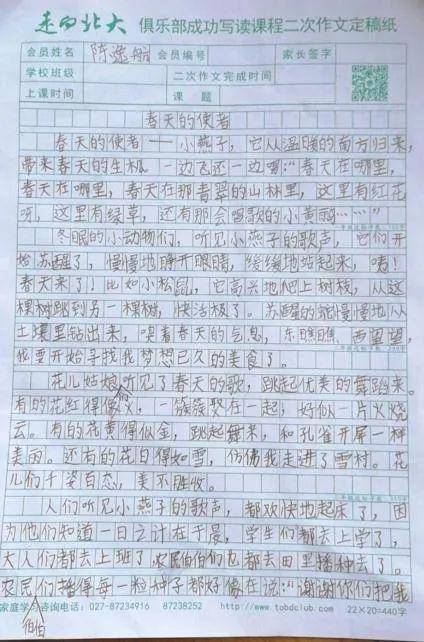 走向北大 俱乐部成功写读课程二次作文定稿纸
会员姓名 陈逸航 会员编号 家长签字
学校班级 二次作文完成时间
上课时间 课题
春天的使者
春天的使者——小燕子,它从温暖的南方归来,
带来春天的生机。一边飞还一边唱:“春天在哪里,
春天在哪里,春天在那青翠的山林里,这里有红花
呀,这里有绿草,还有那会唱歌的小黄鹂……”
冬眠的小动物们,听见小燕子的歌声,它们开
始苏醒了,慢慢地睁开眼睛,缓缓地站起来,咦!
春天来了!比如小松鼠,它高兴地爬上树枝,从这
棵树跳到另一棵树,快活极了。苏醒的蛇慢慢地从
土壤里钻出来,嗅着春天的气息,东瞧瞧,西望望,
我要开始寻找我梦想已久的美食了。
花儿姑娘们听见了春天的歌,跳起优美的舞蹈来。
有的花红得像火,一簇簇聚在一起,好似一片火烧
云。有的花黄得似金,跳起舞来,和孔雀开屏一样
美丽。还有的花白得如雪,仿佛我走进了雪村。花
儿们千姿百态,美不胜收。
人们听见小燕子的歌声,都欢快地起床了,因
为他们知道一日之计在于晨,学生们都去上学了,
大人们都去上班了,农民伯伯们也都去田里播种去了。
农民伯伯们播得每一粒种子都好像在说:“谢谢你们把我
家庭学习咨询电话:027-87234916 87238252 http://www.tobdclub.com 22×20=440字